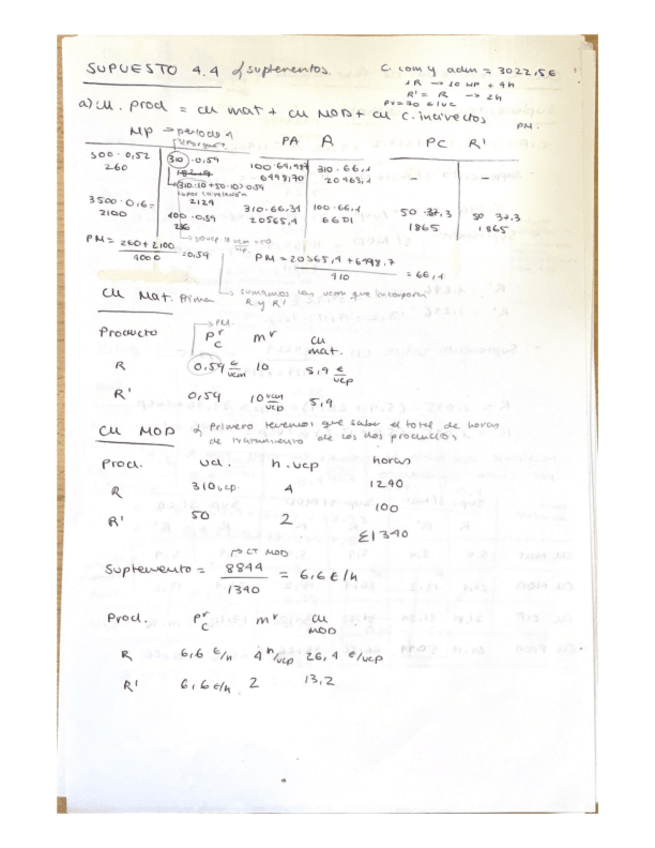 SUPUESTO 4.4 suplementos.
C. com y adm = 3022,5 €
1R → 10 MP + 4h
R' = R → 2h
PV = 70 €/uc
a) CU. prod = CU mat + CU MOD + CU C. indirectos
MP → periodo 1
PA A PC R' PM.
500 · 0,52 310 · 0,59 310 · 66,1
260 6498,70 20463,1 - -
(310·10 + 50·10) 0,59
2124
3500 · 0,6 = 310 · 66,34 100 · 66,1 50 · 37,3 50 37,3
2100 400 · 0,59 20565,4 6601 1865 1865
PM = 260 + 2100 / 4000 = 0,59
PM = 20565,4 + 6498,7 / 410 = 66,1
CU Mat. Prima
sumamos las ucm que incorporan
R y R'
PM.
Producto Pr c mr CU mat.
R 0,59 €/ucm 10 5,9 €/ucp
R' 0,59 10 ucm/ucp 5,9
CU MOD Primero tenemos que saber el total de horas
de tratamiento de los dos productos
Prod. ud. h. ucp horas
R 310 ucp 4 1240
R' 50 2 100
Σ1340
CT MOD
Suplemento = 8844 / 1340 = 6,6 €/h
Prod. Pr c mr CU MOD
R 6,6 €/h 4 h/ucp 26,4 €/ucp
R' 6,6 €/h 2 13,2